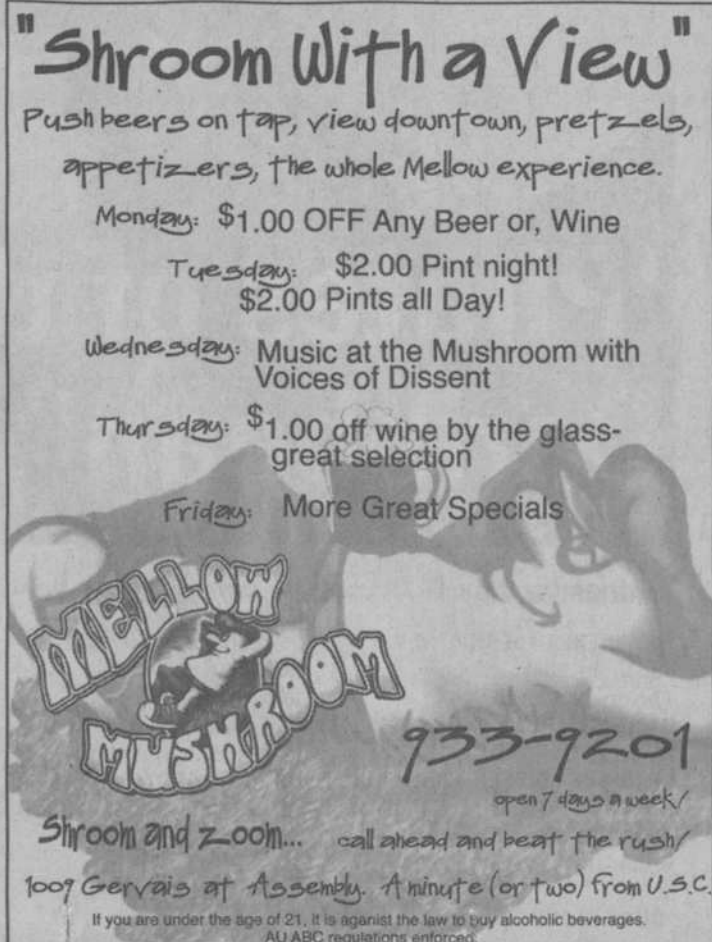 "Shroom With a View"
Push beers on tap, view downtown, pretzels,
appetizers, the whole Mellow experience.
Monday: $1.00 OFF Any Beer or, Wine
Tuesday: $2.00 Pint night!
$2.00 Pints all Day!
Wednesday: Music at the Mushroom with
Voices of Dissent
Thursday: $1.00 off wine by the glass-
great selection
Friday: More Great Specials
MELLOW
MUSHROOM
933-9201
open 7 days a week/
Shroom and zoom... call ahead and beat the rush/
1009 Gervais at Assembly. A minute (or two) from U.S.C.
If you are under the age of 21, it is aganist the law to buy alcoholic beverages.
All ABC regulations enforced